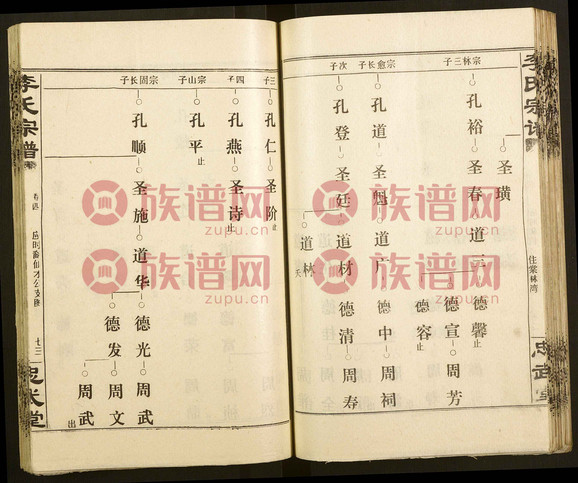 李氏宗谱
忠武堂
住棠林湾
圣璜
宗林三子
孔裕 圣春 道三 德馨止
德宣 周芳
德容止
宗愈长子
孔道 圣魁 道广 德中 周祠
次子
孔登 圣廷 道材 德清 周寿
道林夭
三子
孔仁 圣阶止
四子
孔燕 圣诗止
宗山子
孔平止
宗固长子
孔顺 圣施 道华 德光 周武
德发 周文
周武出
李氏宗譜
七三
忠武堂
族谱网
zupu.cn
族谱网
zupu.cn
族谱网
zupu.cn
族谱网
zupu.cn